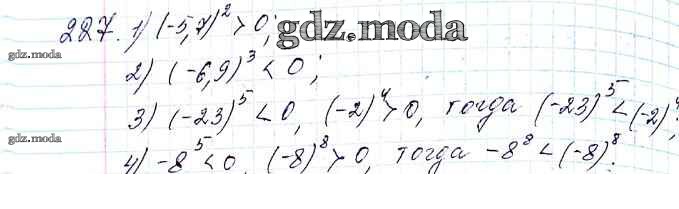 227. 1) (-5,7)² > 0; gdz.moda
gdz.moda
2) (-6,9)³ < 0;
3) (-23)⁵ < 0, (-2)⁴ > 0, тогда (-23)⁵ < (-2)⁴;
gdz.moda
4) -8⁵ < 0, (-8)⁸ > 0, тогда -8⁸ < (-8)⁸.